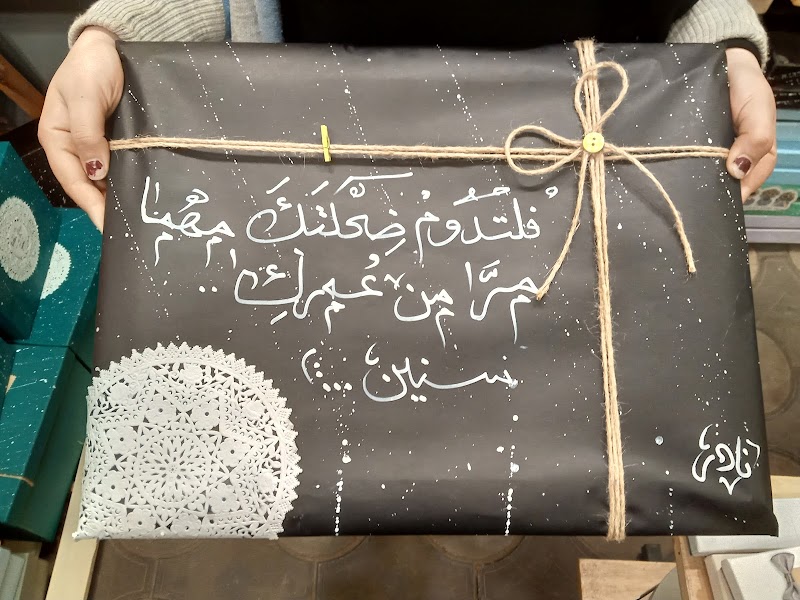 فلتَدُومْ ضِحْكَتَكَ مهْمَا
مرَّا من عُمركِ ..
سنين ...؛
نادر